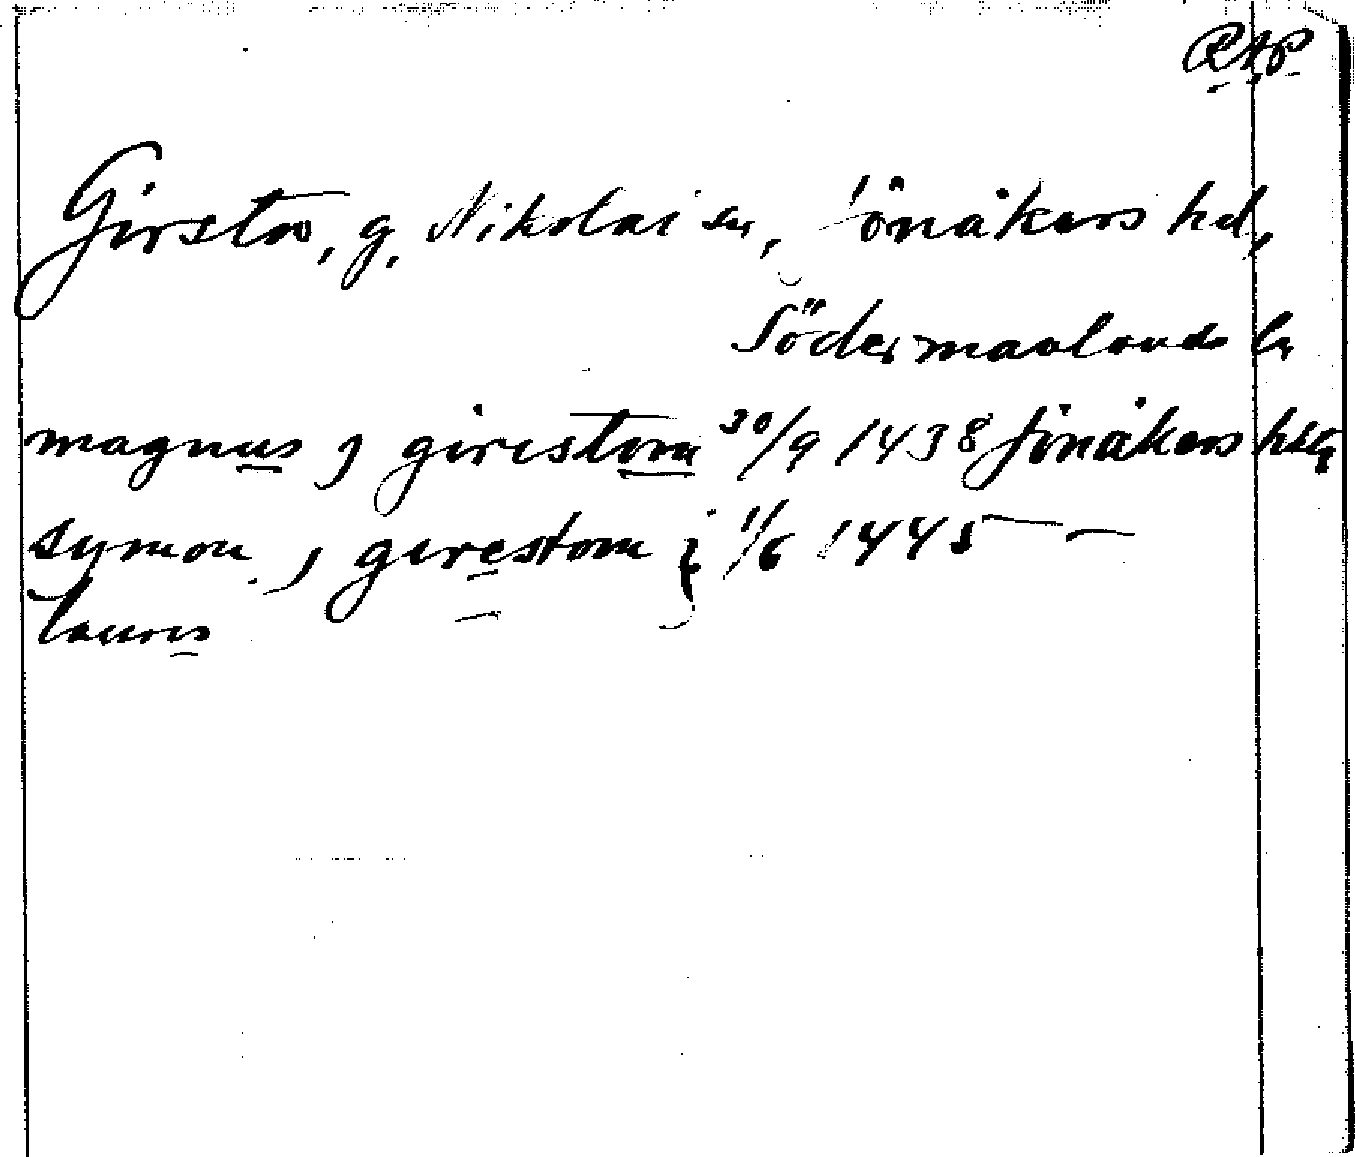 RAP
Girsta, g. Nikolai sn, Jönåkers hd,
Södermanlands l.
magnus j giristom 30/9 1438 Jönåkers hds
symon j girestom j 1/6 1445 — —
lauris